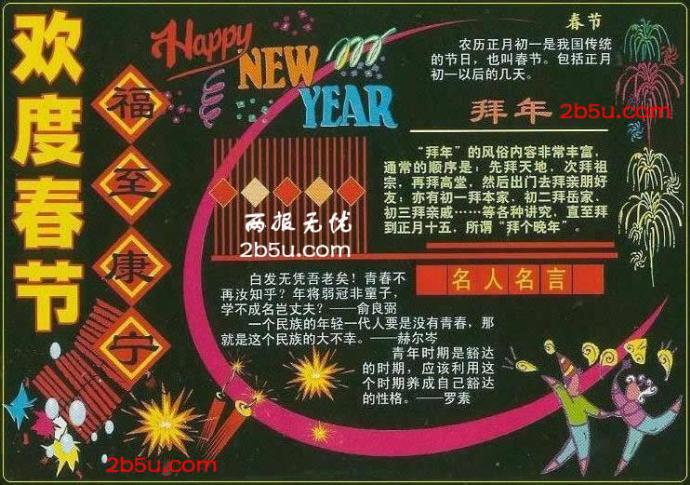 欢度春节
福至康宁
Happy
NEW
YEAR
春节
农历正月初一是我国传统
的节日，也叫春节。包括正月
初一以后的几天。
拜年
2b5u.com
“拜年”的风俗内容非常丰富，
通常的顺序是：先拜天地，次拜祖
宗，再拜高堂，然后出门去拜亲朋好
友；亦有初一拜本家，初二拜岳家，
初三拜亲戚……等各种讲究，直至拜
到正月十五，所谓“拜个晚年”。
两报无忧
2b5u.com
名人名言
白发无凭吾老矣！青春不
再汝知乎？年将弱冠非童子，
学不成名岂丈夫？——俞良弼
一个民族的年轻一代人要是没有青春，那
就是这个民族的大不幸。——赫尔岑
青年时期是豁达
的时期，应该利用这
个时期养成自己豁达
的性格。——罗素
2b5u.com